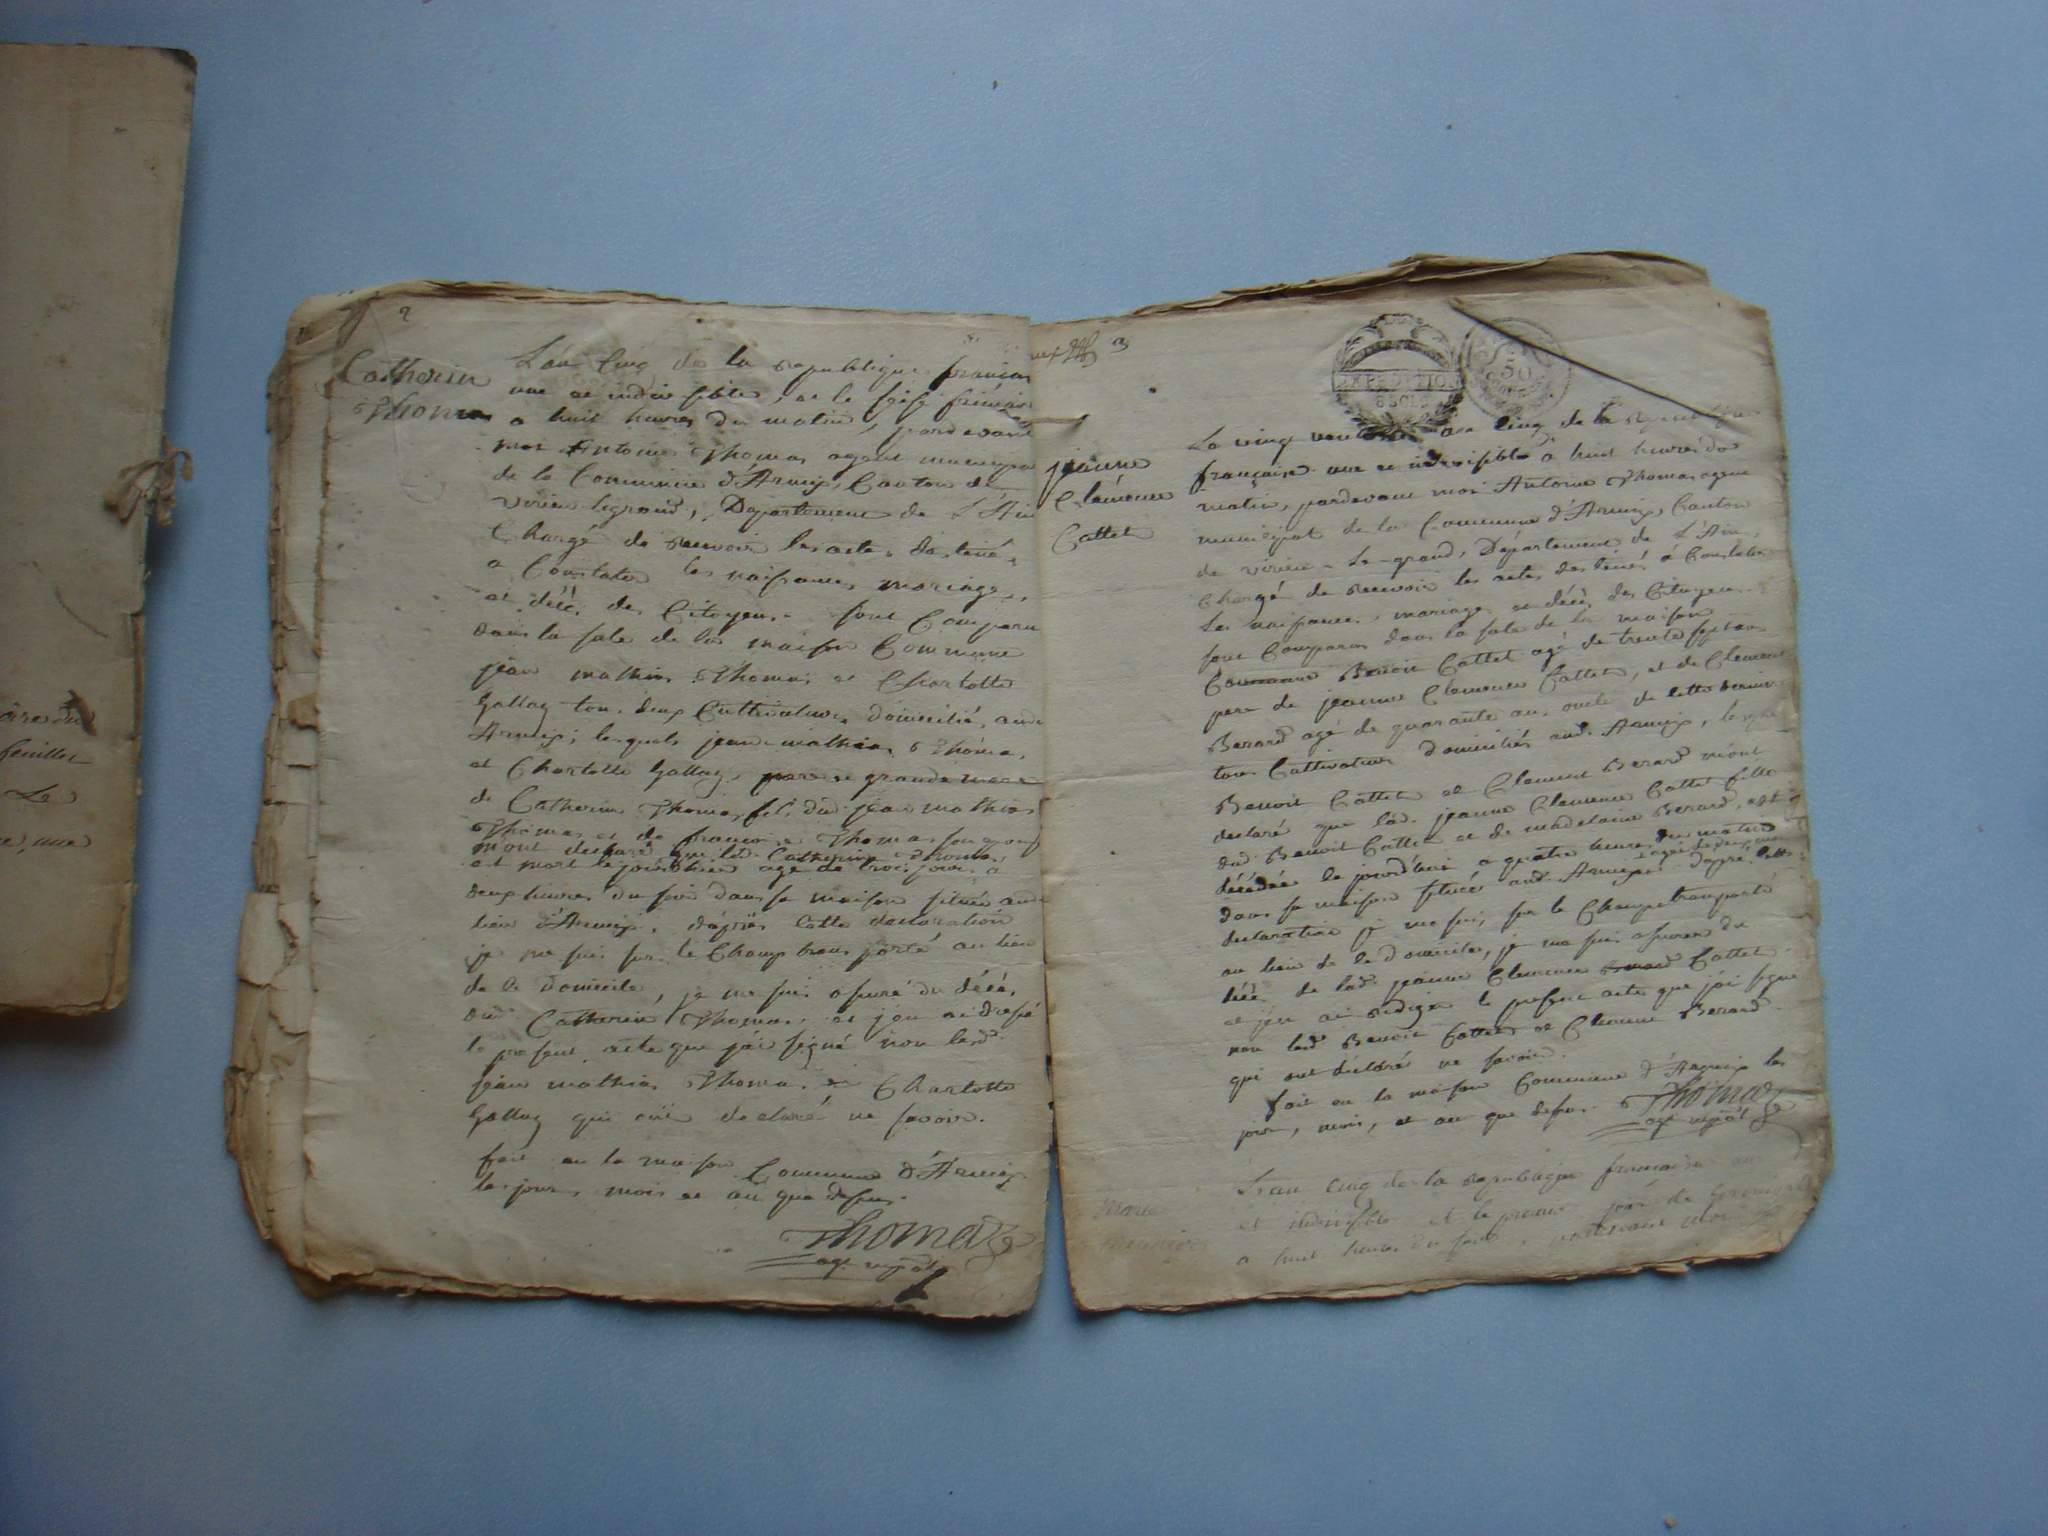 feuillet
Le
2
Catherine
Thomas
L'an cinq de la republique francai
une et indivisible, et le seize frimaire
a huit heures du matin, pardevant
moi Antoine Thomas agent municipal
de la Commune d'Armix, Canton de
virieu legrand, Département de L'Ain
Chargé de recevoir les actes destinés
a Constater les naissances mariages,
et décès des Citoyens. sont Comparu
dans la sale de la maison Commune
jean mathieu Thomas et Charlotte
Gallay tous deux Cultivateurs domiciliés aud.
Armix; lesquels jean mathieu Thomas,
et Charlotte Gallay, pere et grande mere
de Catherine Thomas fil. dud. jean mathieu
Thomas et de francoise Thomas
mont declaré que lad. Catherine Thomas
est mort le jourdhier agé de trois jours a
deux heures du soir dans sa maison située aud.
lieu d'Armix, d'après cette declaration
je me suis sur le Champ transporté au lieu
de le Domicile, je me suis assuré du décés
dud. Catherine Thomas, et j'en ai dressé
le present acte que j'ai signé non lesd.
jean mathieu Thomas et Charlotte
Gallay qui ont declaré ne savoir.
fait en la maison Commune d'Armix
les jours, mois et an que dessus.
Thomas
agt mpal
3
EXPEDITION
6 SOLS
50
jeanne
Clémence
Cattet
Le vingt ventose an cinq de la Republique
française une et indivisible a huit heures du
matin, pardevant moi Antoine Thomas agent
municipal de la Commune d'Armix, Canton
de virieu-le-grand, Département de L'Ain,
Chargé de recevoir les actes destinés à Constater
Les naissances, mariages et décès des Citoyens.
sont Comparus dans la sale de la maison
Commune Benoit Cattet agé de trente sept ans
pere de jeanne Clemence Cattet, et de Clement
Berard agé de quarante ans oncle de cette derniere
tous Cultivateurs domiciliés aud. Armix, lesquels
Benoit Cattet et Clement Berard m'ont
declaré que lad. jeanne Clemence Cattet fille
dud. Benoit Cattet et de madelaine Berard, est
décédée le jourd'hui a quatre heures du matin
dans sa maison située aud. Armix d'apres cette
declaration je me suis sur le Champ transporté
au lieu de le domicile, je me suis assuré du
décés de lad. jeanne Clemence Cattet
et j'en ai rédigé le present acte que j'ai signé
non lesd. Benoit Cattet et Clement Berard
qui ont déclaré ne savoir.
fait en la maison Commune d'Armix les
jour, mois, et an que dessus. Thomas
agt mpal
Marie
L'an cinq de la republique francaise une
et indivisible et le premier jour de germinal
a huit heures du soir, pardevant moi